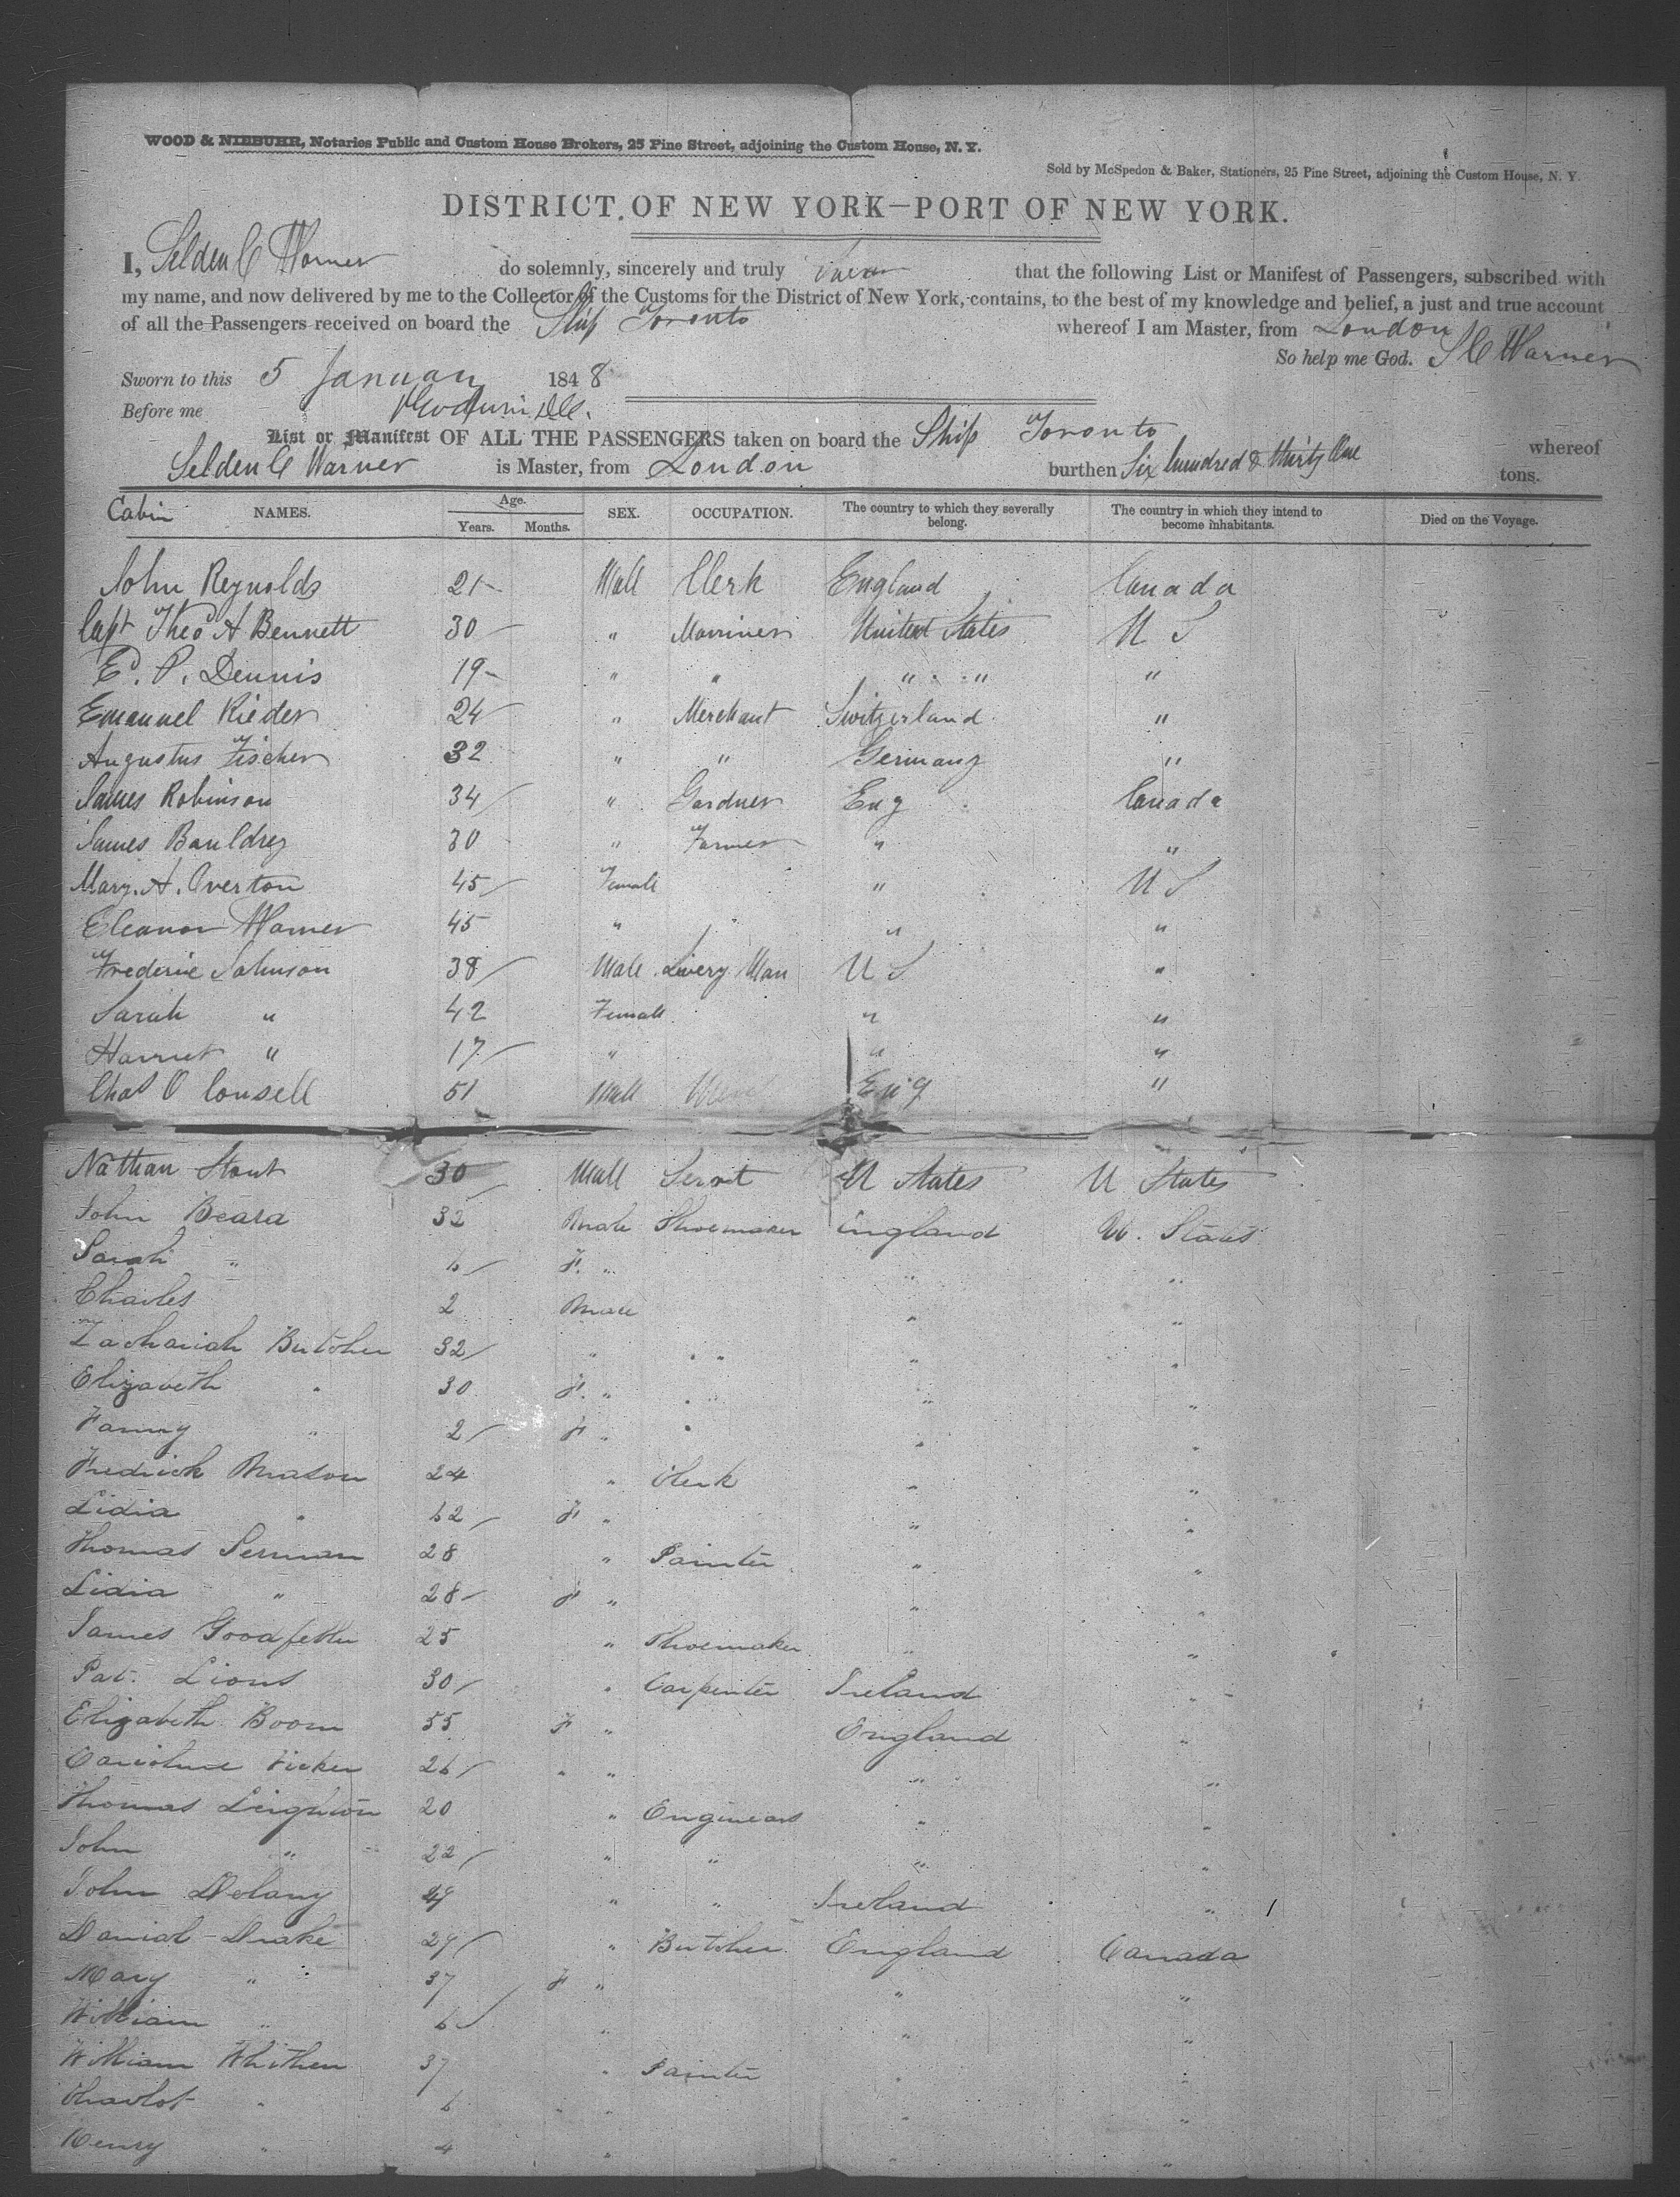 WOOD & NIEBUHR, Notaries Public and Custom House Brokers, 25 Pine Street, adjoining the Custom House, N. Y.
Sold by McSpedon & Baker, Stationers, 25 Pine Street, adjoining the Custom House, N. Y.
DISTRICT OF NEW YORK—PORT OF NEW YORK.
I, Selden C Warner do solemnly, sincerely and truly swear that the following List or Manifest of Passengers, subscribed with
my name, and now delivered by me to the Collector of the Customs for the District of New York, contains, to the best of my knowledge and belief, a just and true account
of all the Passengers received on board the Ship Toronto whereof I am Master, from London
So help me God. S C Warner
Sworn to this 5 January 1848
Before me
List or Manifest OF ALL THE PASSENGERS taken on board the Ship Toronto whereof
Selden C Warner is Master, from London burthen Six hundred & thirty One tons.
Cabin NAMES. Age. Years. Months. SEX. OCCUPATION. The country to which they severally belong. The country in which they intend to become inhabitants. Died on the Voyage.
John Reynolds 21 Male Clerk England Canada
Capt Theo A Bennett 30 " Marriner United States U S
E. P. Dennis 19 " " " " "
Emanuel Rieder 24 " Merchant Switzerland "
Augustus Fischer 32 " " Germany "
James Robinson 34 " Gardner Eng Canada
James Bauldrey 30 " Farmer " "
Mary. A. Overton 45 Female " U S
Eleanor Warner 45 " " "
Frederic Johnson 38 Male Livery Man U S "
Sarah " 42 Female " "
Harriet " 17 " " "
Chas O Consell 51 Male Eng "
Nathan Stout 30 Male Servt U States U States
John Beard 32 Male Shoemaker England U. States
Sarah " 6 F. " " "
Charles 2 Male " "
Zachariah Butcher 32 " " " "
Elizabeth " 30 F. " " "
Fanny " 2 F " " "
Fredrick Mason 24 " Clerk " "
Lidia " 62 F " " "
Thomas Serman 28 " Painter " "
Lidia " 28 F " " "
James Goodfellow 25 " Shoemaker " "
Pat. Lions 30 " Carpenter Ireland "
Elizabeth Boom 55 F " England "
Caroline 26 " " " "
Thomas Leighton 20 " Engineers " "
John " 22 " " " "
John Delany " " Ireland "
Danial Drake 29 " Butcher England Canada
Mary " 37 F " " "
William " 6 " " "
William Whithen 37 " Painter " "
Charlot " 6 " " " "
Henry " 4 " " "